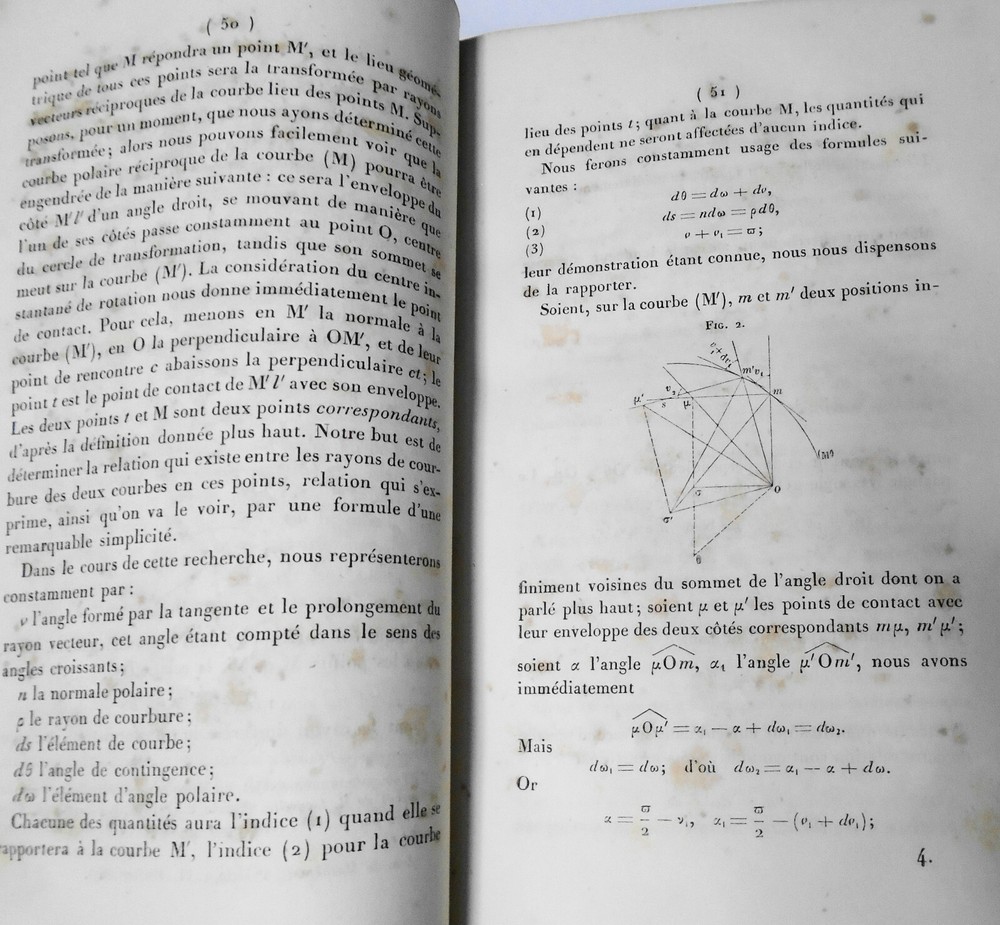 ( 50 )
point tel que M répondra un point M′, et le lieu géomé-
trique de tous ces points sera la transformée par rayons
vecteurs réciproques de la courbe lieu des points M. Sup-
posons, pour un moment, que nous ayons déterminé cette
transformée; alors nous pouvons facilement voir que la
courbe polaire réciproque de la courbe (M) pourra être
engendrée de la manière suivante : ce sera l'enveloppe du
côté M′l′ d'un angle droit, se mouvant de manière que
l'un de ses côtés passe constamment au point O, centre
du cercle de transformation, tandis que son sommet se
meut sur la courbe (M′). La considération du centre in-
stantané de rotation nous donne immédiatement le point
de contact. Pour cela, menons en M′ la normale à la
courbe (M′), en O la perpendiculaire à OM′, et de leur
point de rencontre c abaissons la perpendiculaire ct; le
point t est le point de contact de M′l′ avec son enveloppe.
Les deux points t et M sont deux points correspondants,
d'après la définition donnée plus haut. Notre but est de
déterminer la relation qui existe entre les rayons de cour-
bure des deux courbes en ces points, relation qui s'ex-
prime, ainsi qu'on va le voir, par une formule d'une
remarquable simplicité.
Dans le cours de cette recherche, nous représenterons
constamment par :
υ l'angle formé par la tangente et le prolongement du
rayon vecteur, cet angle étant compté dans le sens des
angles croissants;
n la normale polaire;
ρ le rayon de courbure;
ds l'élément de courbe;
dθ l'angle de contingence;
dω l'élément d'angle polaire.
Chacune des quantités aura l'indice (1) quand elle se
rapportera à la courbe M′, l'indice (2) pour la courbe
( 51 )
lieu des points t; quant à la courbe M, les quantités qui
en dépendent ne seront affectées d'aucun indice.
Nous ferons constamment usage des formules sui-
vantes :
(1) dθ = dω + dυ,
(2) ds = ndω = ρdθ,
(3) υ + υ₁ = ϖ;
leur démonstration étant connue, nous nous dispensons
de la rapporter.
Soient, sur la courbe (M′), m et m′ deux positions in-
FIG. 2.
υ₁ + dυ₁
m′ υ₁
υ₂
m
μ′
s
μ
(M′)
σ
O
σ′
θ
finiment voisines du sommet de l'angle droit dont on a
parlé plus haut; soient μ et μ′ les points de contact avec
leur enveloppe des deux côtés correspondants mμ, m′μ′;
soient α l'angle μOm, α₁ l'angle μ′Om′, nous avons
immédiatement
μOμ′ = α₁ − α + dω₁ = dω₂.
Mais
dω₁ = dω; d'où dω₂ = α₁ − α + dω.
Or
α = ϖ/2 − υ₁, α₁ = ϖ/2 − (υ₁ + dυ₁);
4.